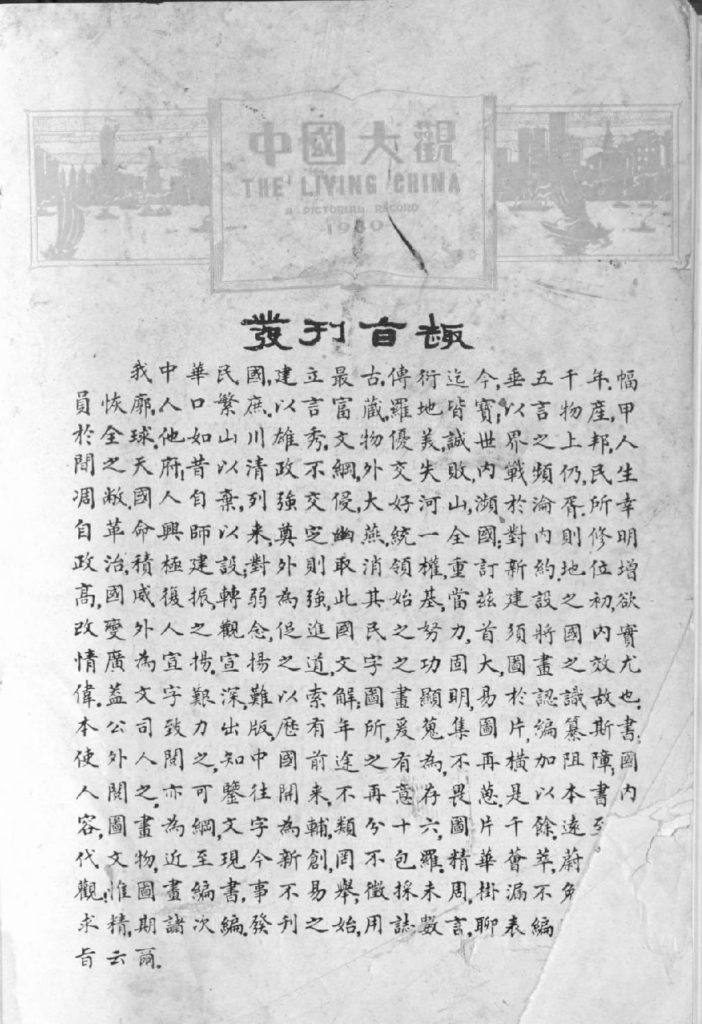 中國大觀
THE LIVING CHINA
A PICTORIAL RECORD
1930
發刊旨趣
我中華民國,建立最古,傳衍迄今,垂五千年.幅
員恢廓,人口繁庶.以言富藏,羅地皆寶;以言物產,甲
於全球.他如山川雄秀,文物優美,誠世界之上邦,人
間之天府;昔以清政不綱,外交失敗,內戰頻仍,民生
凋敝,國人自棄,列強交侵,大好河山,瀕於淪胥.所幸
自革命興師以來,奠定幽燕,統一全國;對內則修明
政治,積極建設;對外則取消領權,重訂新約.地位增
高,國威復振,轉弱為強,此其始基,當茲建設之初,欲
改變外人之觀念,促進國民之努力,首須將國內實
情廣為宣揚.宣揚之道,文字之功固大,圖畫之效尤
偉.蓋文字艱深,難以索解;圖畫顯明,易於認識故也.
本公司致力出版,歷有年所,爰蒐集圖片,編纂斯書;
使外人閱之,知中國前途之有為,不再橫加阻障,國
人閱之.亦可鑒往開來,不再意存畏葸.是以本書內
容,圖畫為綱,文字為輔,類分十六,圖片千餘.遠至
代文物,近至現今新創,罔不包羅.精華薈萃,蔚
觀;惟圖畫編書,事不易舉;徵採未周,掛漏不免
求精,期諸次編.發刊之始,用誌數言,聊表編
旨云爾.